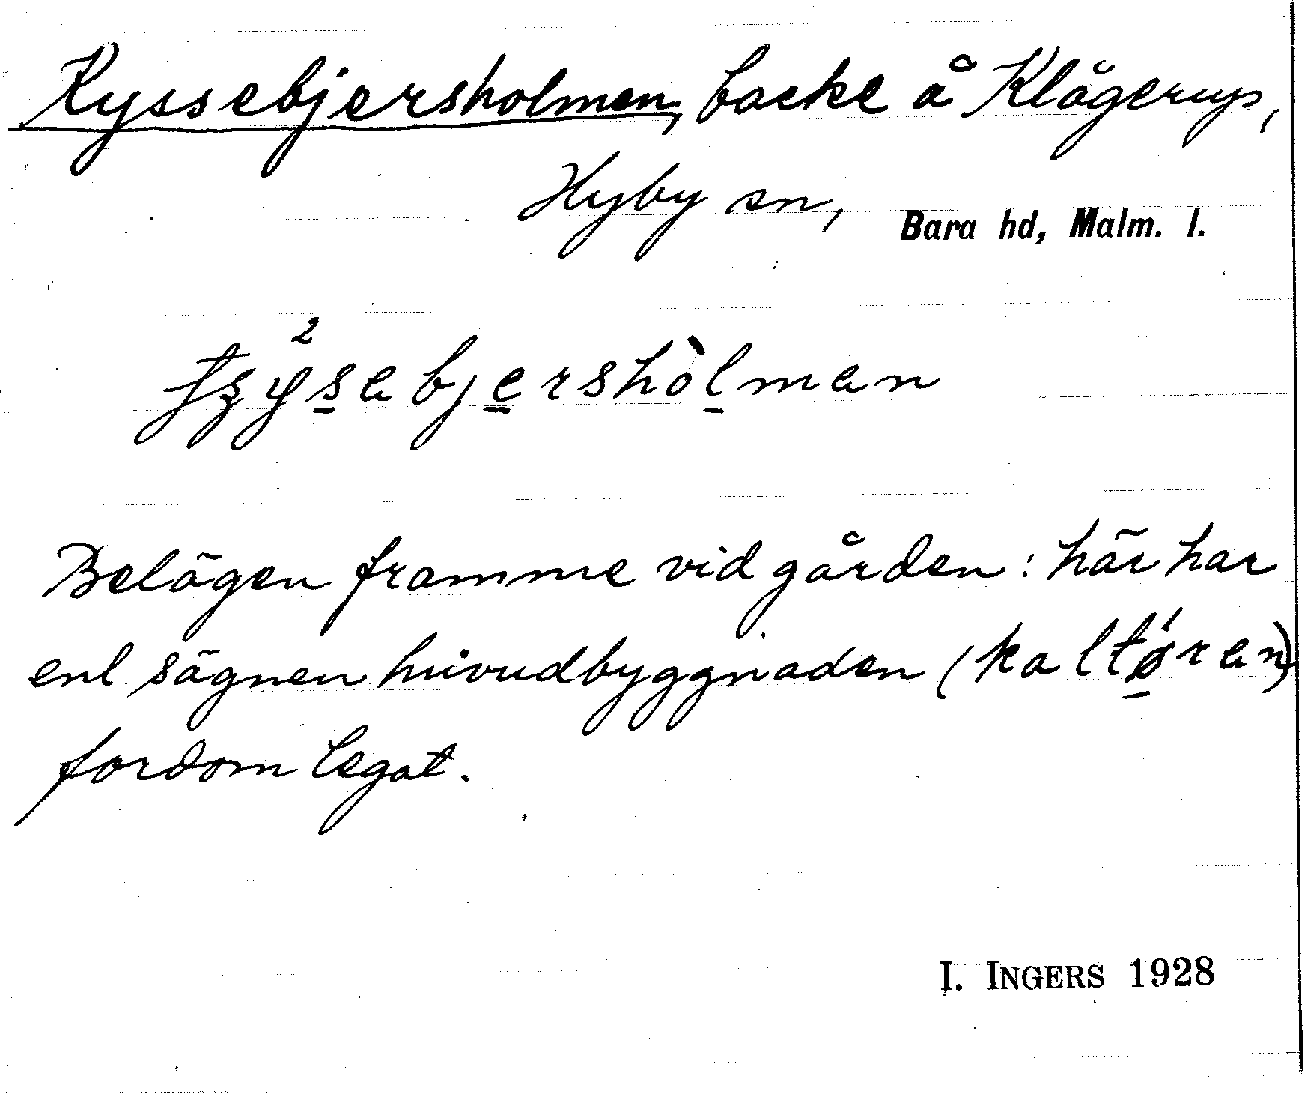 Kyssebjersholmen, backe å Klågerups,
Hyby sn, Bara hd, Malm. l.
Belägen framme vid gården: här har
enl sägnen huvudbyggnaden (kaltøren)
fordom legat.
I. INGERS 1928